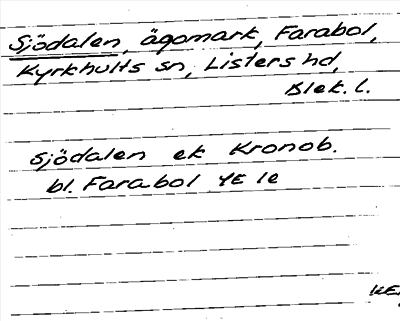 Sjödalen, ägomark, Farabol,
Kyrkhults sn, Listers hd,
Blek. l.
sjödalen ek Kronob.
bl. Farabol 4E 1e